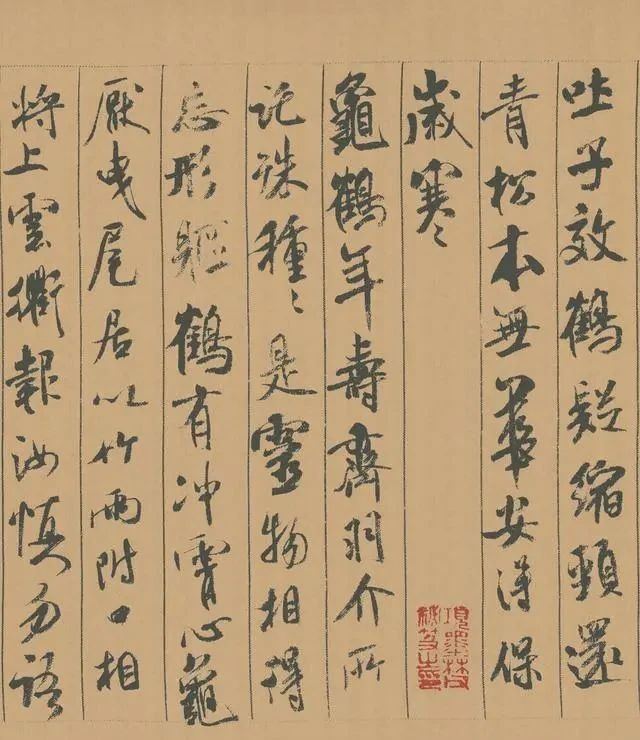 吐子效鶴疑縮頸還
青松本無華安得保
歲寒
龜鶴年壽齊羽介所
託殊種〻是靈物相得
忘形軀鶴有冲霄心龜
厭曳尾居以竹兩附口相
將上雲衢報汝慎勿語
項墨林父
秘笈之印